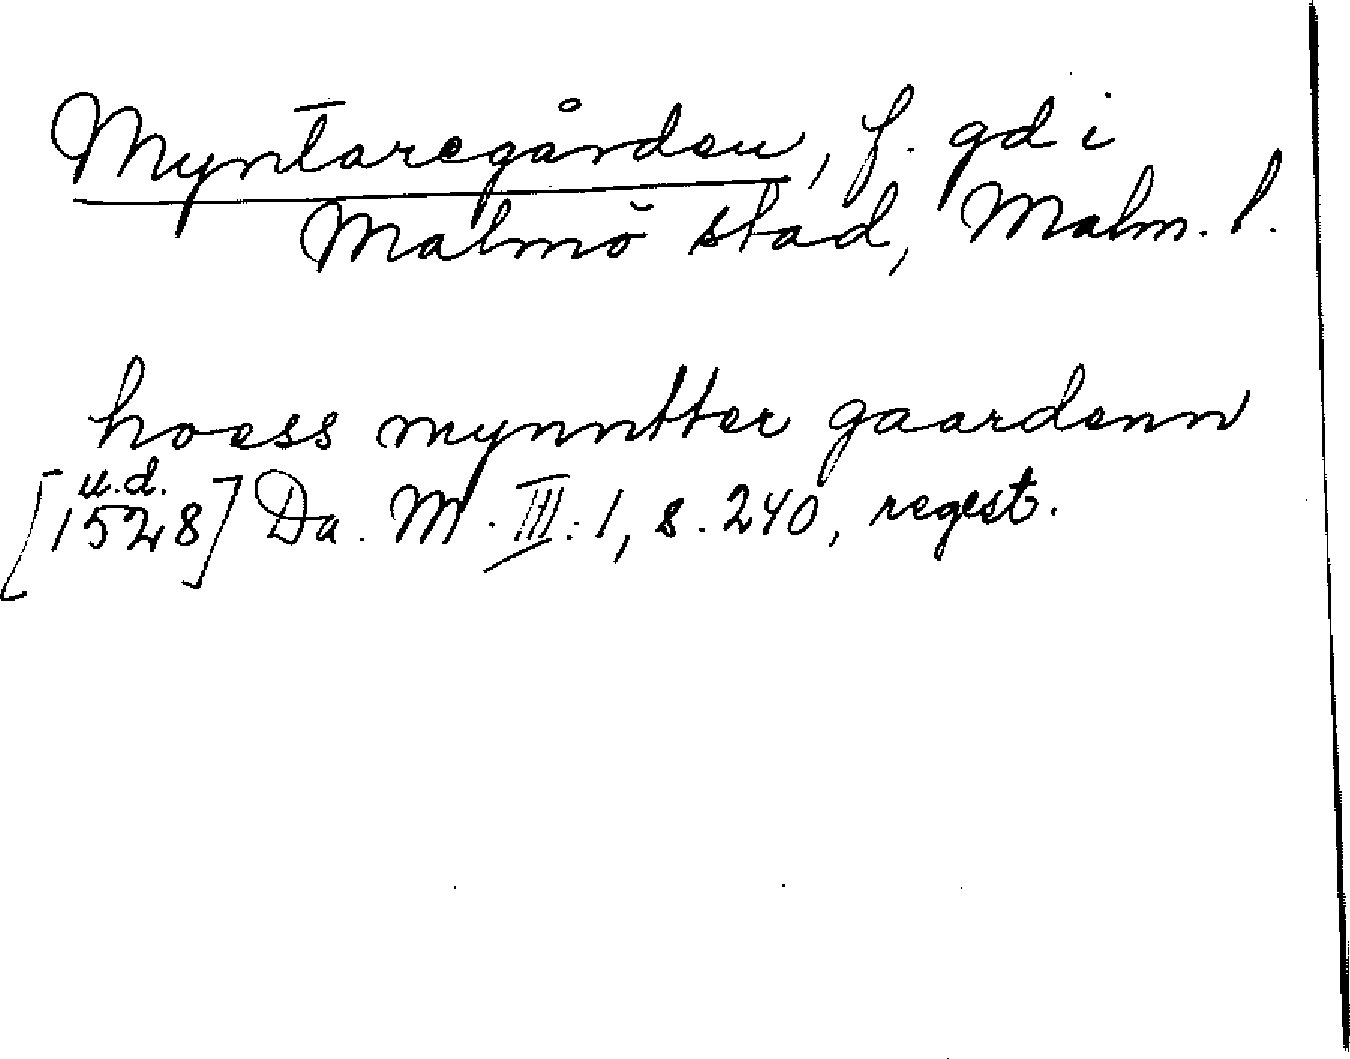 Myntaregården, f. gd i
Malmö stad, Malm. l.
hoess mynntter gaardenn
u.d.
[1528] Da. M. III: 1, s. 240, regest.